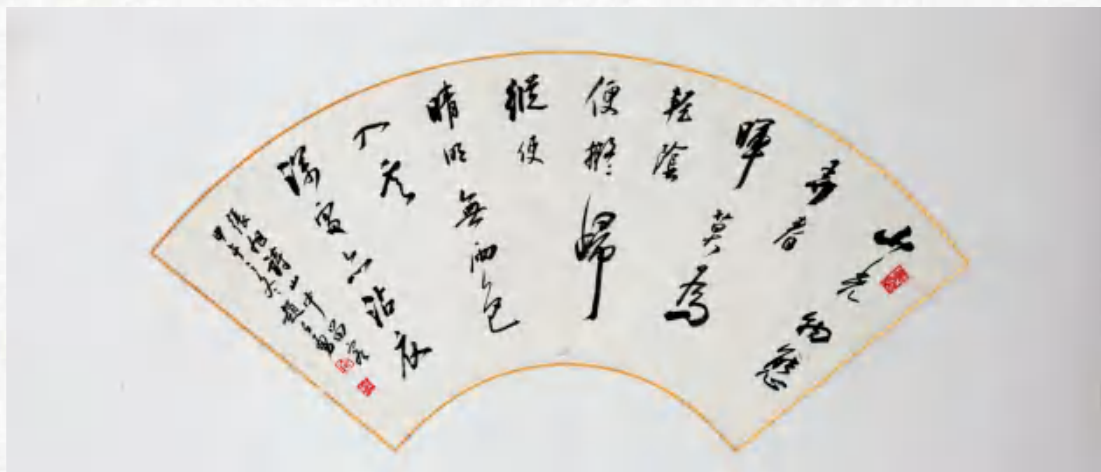 山光物態
弄春
暉莫為
輕陰
便擬歸
縱使
晴明無雨色
入雲
深處亦沾衣
張旭詩山中留客
甲午